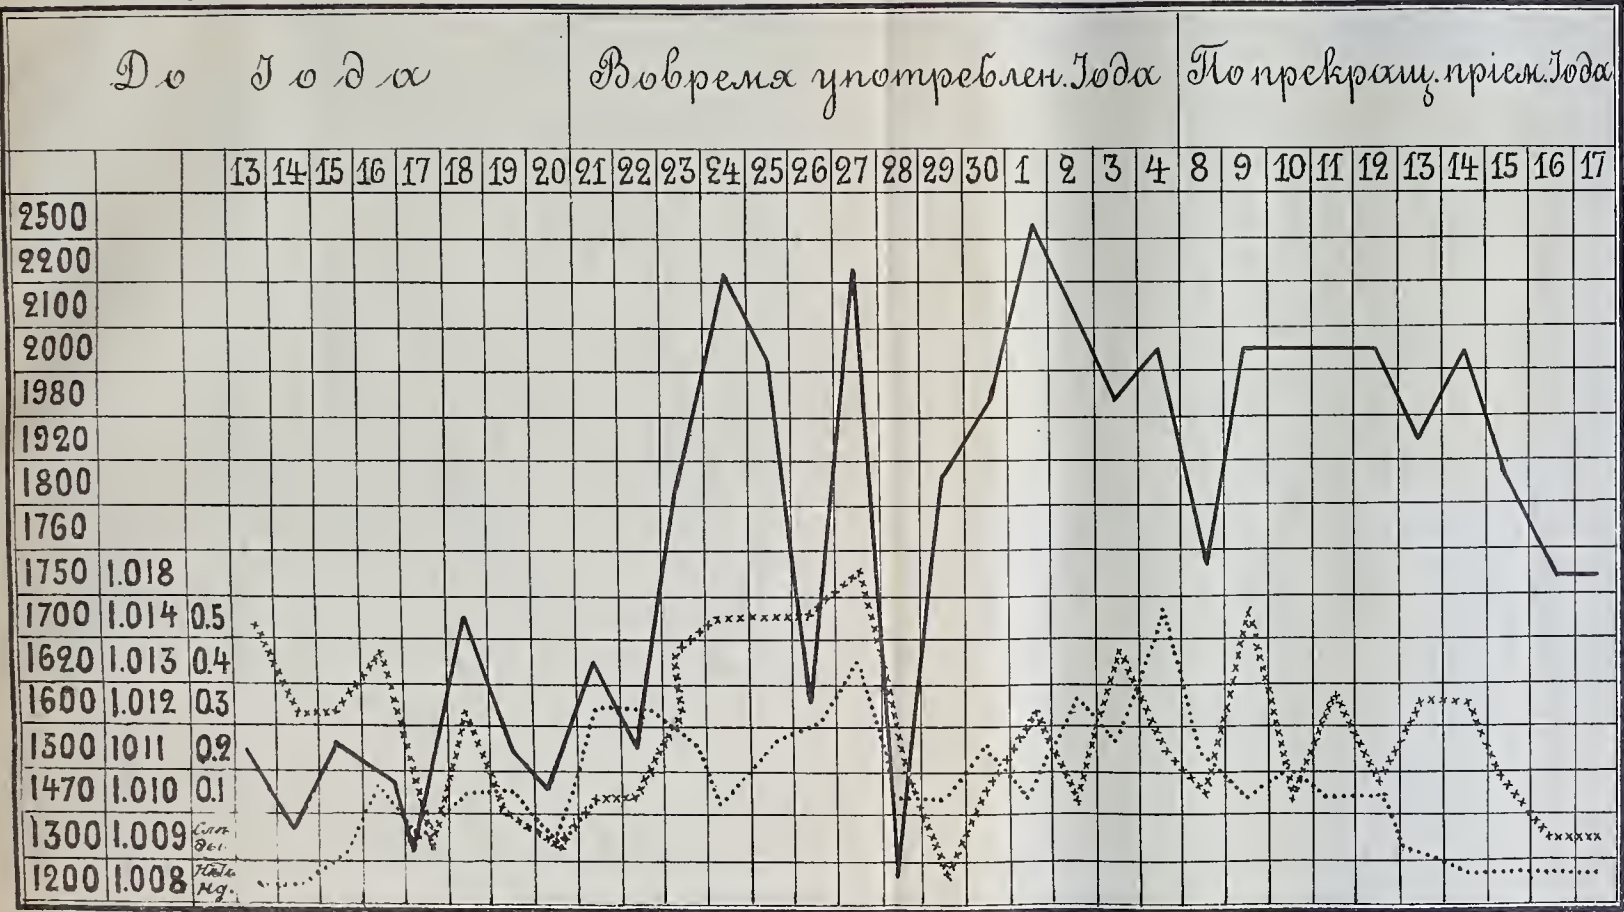 До Іода
Вовремя употреблен. Іода
По прекращ. пріем. Іода
13 14 15 16 17 18 19 20 21 22 23 24 25 26 27 28 29 30 1 2 3 4 8 9 10 11 12 13 14 15 16 17
2500
2200
2100
2000
1980
1920
1800
1760
1750 1.018
1700 1.014 0.5
1620 1.013 0.4
1600 1.012 0.3
1500 1011 0.2
1470 1.010 0.1
1300 1.009
1200 1.008